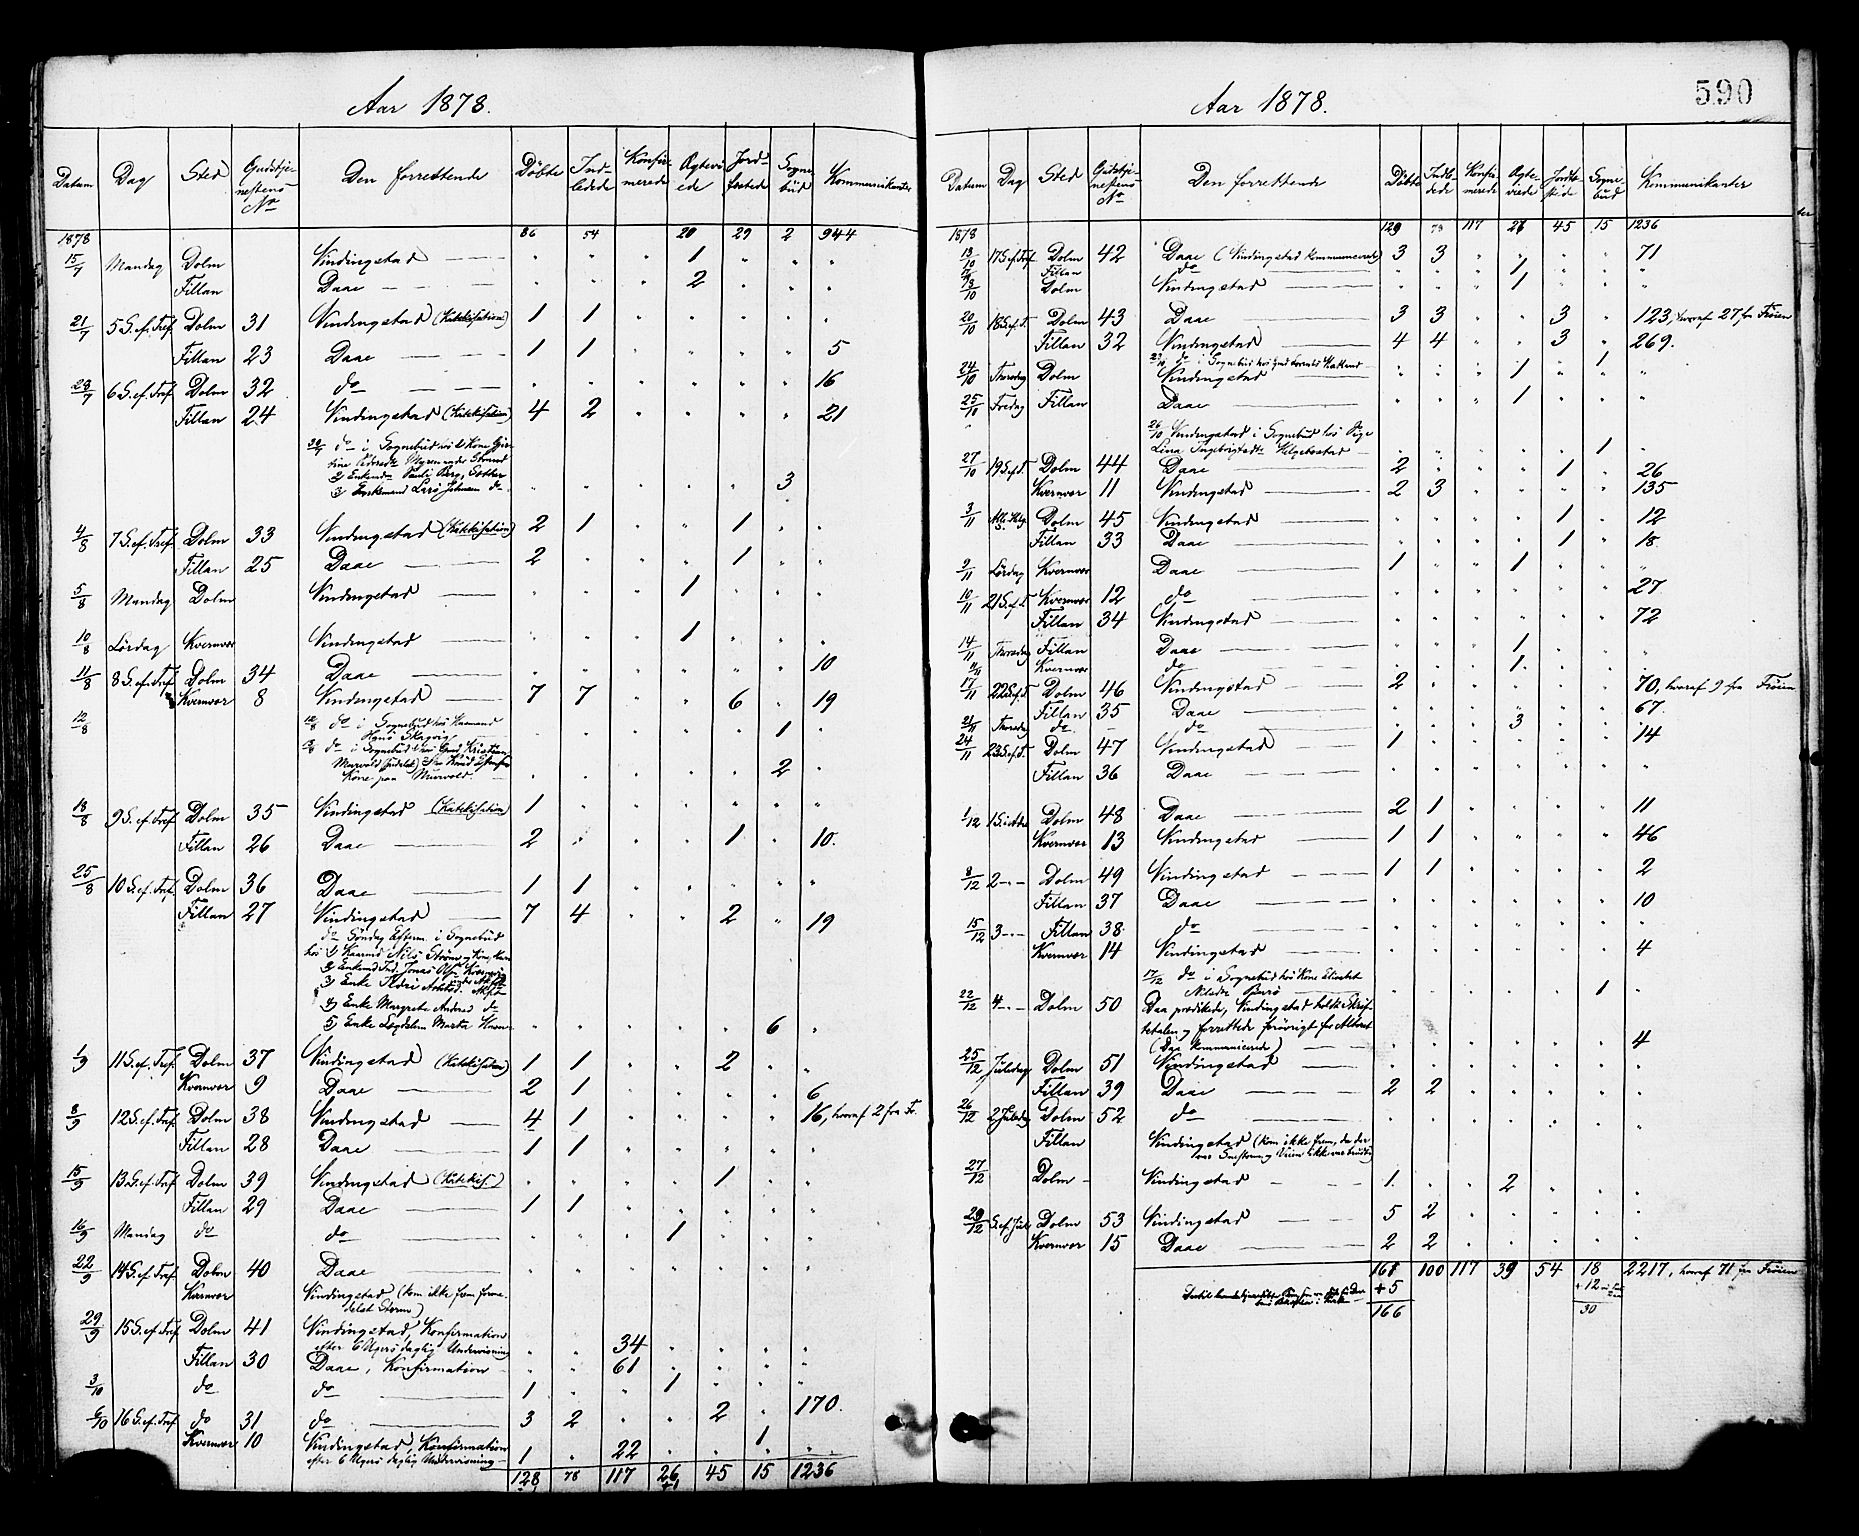 Aar 1878.
Datum Dag Sted Gudstje-nestens No Den forrettende Döbte Ind-ledede Konfir-merede Ægtevi-ede Jord-fæstede Sogne-bud Kommunikanter
1878 86 54 20 29 2 944
15/7 Mandag Dolm Vindingstad — 1
Fillan Daae — 2
21/7 5 S. ef. Tref. Dolm 31 Vindingstad (Katekisation) 1 1
Fillan 23 Daae — 1 1 5
28/7 6 S. ef. Tref. Dolm 32 do — 16
Fillan 24 Vindingstad (Katekisation) 4 2 21
do i Sognebud hos 1) Kone
3
4/8 7 S. ef. Tref. Dolm 33 Vindingstad (Katekisation) 2 1 1
Fillan 25 Daae — 2 1
5/8 Mandag Dolm Vindingstad — 1
10/8 Lördag Kvernvær Vindingstad — 1
11/8 8 S. ef. Tref. Dolm 34 Daae — 10
Kvernvær 8 Vindingstad — 7 7 6 19
12/8 do i Sognebud hos Kaarmand
1
do i Sognebud
Kone paa Murvold 2
18/8 9 S. ef. Tref. Dolm 35 Vindingstad (Katekisation) 1
Fillan 26 Daae — 2 1 10.
25/8 10 S. ef. Tref. Dolm 36 Daae — 1 1
Fillan 27 Vindingstad — 7 4 2 19
do Söndag Efterm. i Sognebud
hos 1) Kaarmd Nils
2) Enkemd
3) Enke
4) Enke Margrete do
5) Enke Marta 6
1/9 11 S. ef. Tref. Dolm 37 Vindingstad (Katekisation) 1 1 2
Kvernvær 9 Daae — 2 1 6
8/9 12 S. ef. Tref. Dolm 38 Vindingstad — 4 1 16, hvoraf 2 fra Fr.
Fillan 28 Daae — 1 1
15/9 13 S. ef. Tref. Dolm 39 Vindingstad (Katekis.) 1
Fillan 29 Daae — 1 1
16/9 Mandag do do — 1
22/9 14 S. ef. Tref. Dolm 40 Daae —
Kvernvær Vindingstad (kom ikke frem forme-
delst Storm)
29/9 15 S. ef. Tref. Dolm 41 Vindingstad, Konfirmation
efter 6 Ugers daglig Undervisning 34
Fillan 30 Daae, Konfirmation 61
3/10 do do — 1 1
6/10 16 S. ef. Tref. do 31 do — 3 2 2 170.
Kvernvær 10 Vindingstad, Konfirmation
efter 6 Ugers daglig Undervisning 1 22 1
128 78 117 26 45 15 1236
Aar 1878.
590
Datum Dag Sted Gudstje-nestens No Den forrettende Döbte Indle-dede Konfir-merede Ægte-viede Jordfæ-stede Sogne-bud Kommunikanter
1878 129 78 117 26 45 15 1236
13/10 17 S. ef. Tref. Dolm 42 Daae (Vindingstad kommunicerede) 3 3 71
Fillan do 1
Dolm Vindingstad — 1
20/10 18 S. ef. T. Dolm 43 Daae — 3 3 3 123, hvoraf 27 fra Fröien
Fillan 32 Vindingstad — 4 4 3 269.
do i Sognebud hos 1
24/10 Thorsdag Dolm Vindingstad — 1
25/10 Fredag Fillan Daae — 1
26/10 Vindingstad i Sognebud hos Pige
Lina 1
27/10 19 S. ef. T. Dolm 44 Daae — 2 1 26
Kvernvær 11 Vindingstad — 2 3 135
3/11 Alle Helg. S. Dolm 45 Vindingstad — 1 12
Fillan 33 Daae — 1 18.
9/11 Lördag Kvernvær Daae — 1 1
10/11 21 S. ef. T. Kvernvær 12 do — 27
Fillan 34 Vindingstad — 72
14/11 Thorsdag Fillan Daae — 1
Kvernvær do 1.
17/11 22 S. ef. T. Dolm 46 Vindingstad — 2 70, hvoraf 9 fra Fröien
Fillan 35 Daae — 67.
21/11 Thorsdag do do 3
24/11 23 S. ef. T. Dolm 47 Vindingstad — 1 14
Fillan 36 Daae —
1/12 1 S. i Adv. Dolm 48 Daae — 2 1 11
Kvernvær 13 Vindingstad — 1 1 46
8/12 2 - - Dolm 49 Vindingstad — 1 1 2
Fillan 37 Daae — 10
15/12 3 - - Fillan 38 do —
Kvernvær 14 Vindingstad — 4
17/12 do i Sognebud hos Kone Elisabet
1
22/12 4 - - Dolm 50 Daae prædikede, Vindingstad holdt Skrif-
tetalen og forrettede forövrigt for Alteret
(Daae kommunicerede) — 4
25/12 Juledag Dolm 51 Vindingstad —
Fillan 39 Daae — 2 2
26/12 2 Juledag Dolm 52 do —
Fillan Vindingstad (kom ikke frem, da der
var Snestorm og Veien ikke var brudt)
27/12 Dolm - Vindingstad — 1. 2
29/12 S. ef. Jul Dolm 53 Vindingstad — 5 2
Kvernvær 15 Daae — 2 2
161 100 117 39 54 18 2217, hvoraf 71 fra Fröien
+ 5 + 12
166 30